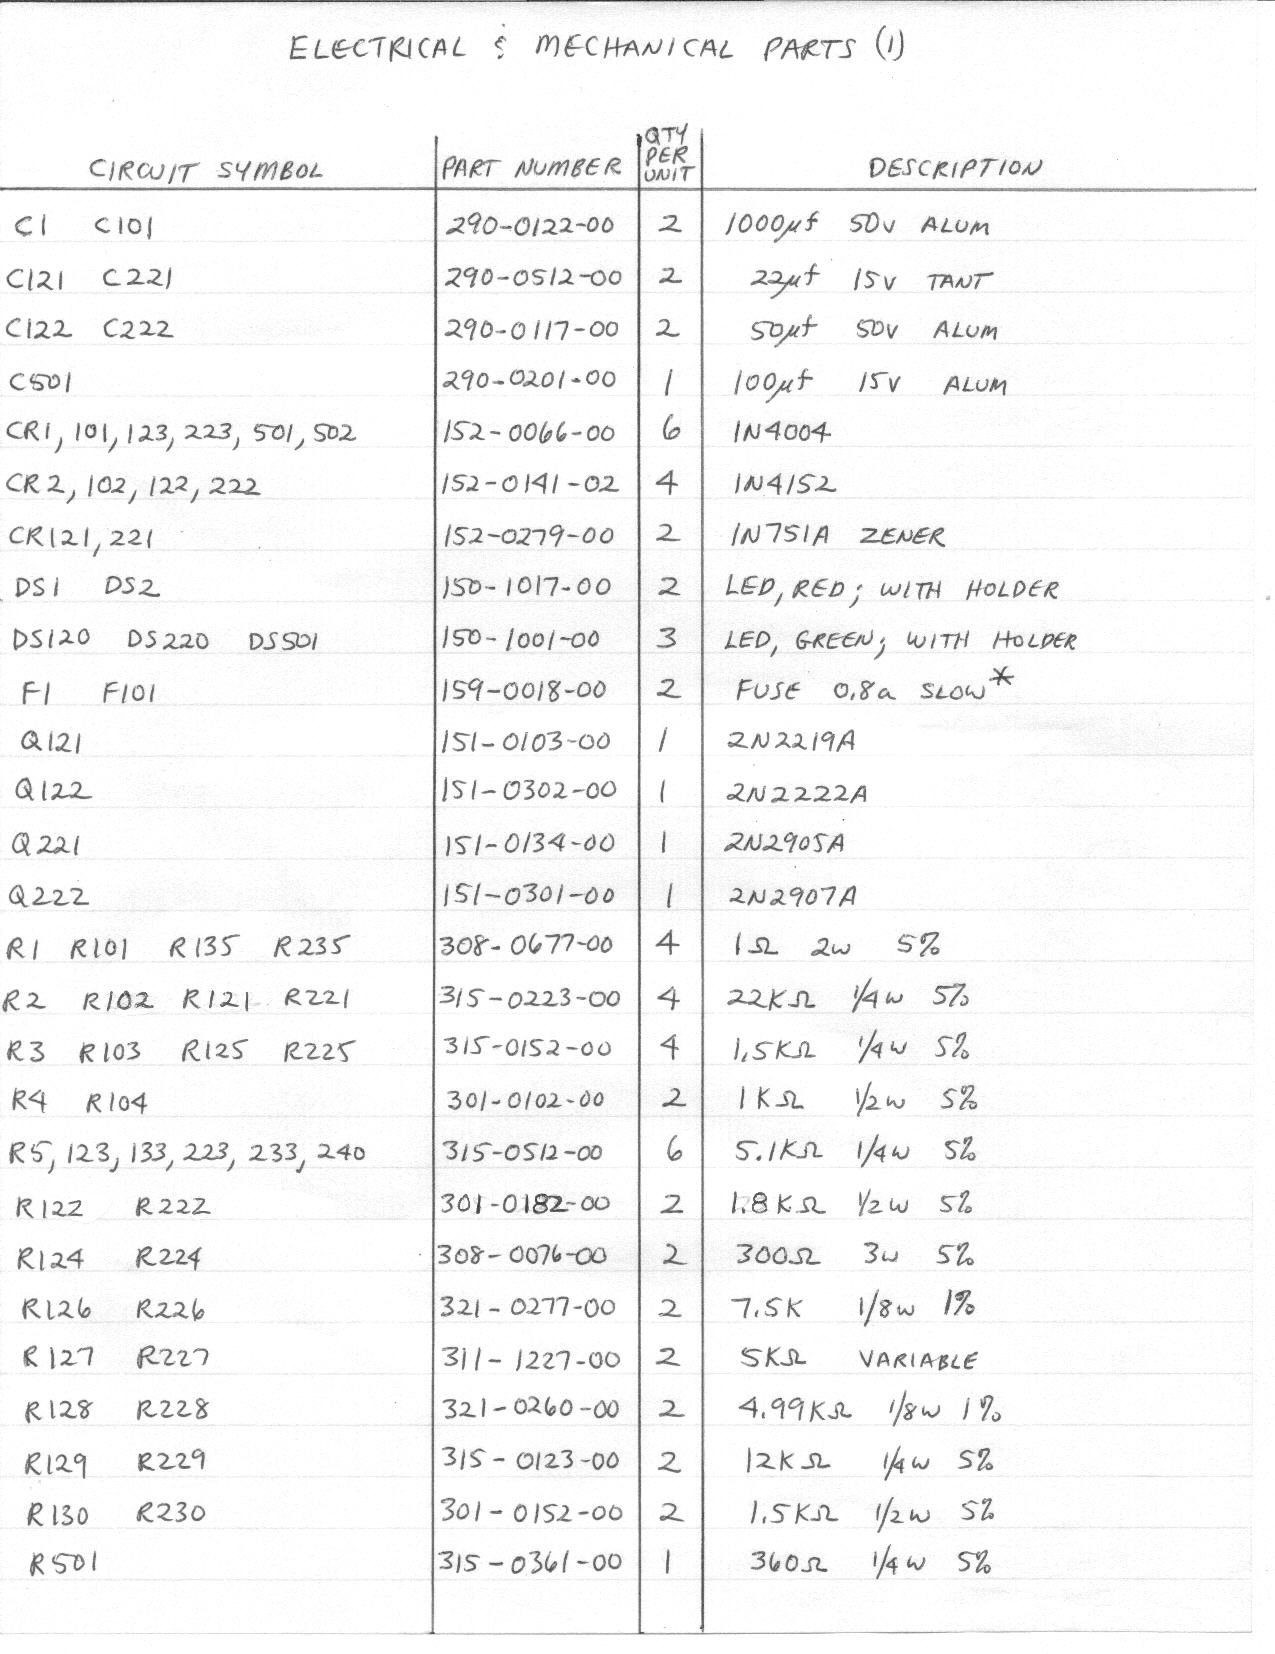 ELECTRICAL & MECHANICAL PARTS (1)
CIRCUIT SYMBOL PART NUMBER QTY PER UNIT DESCRIPTION
C1 C101 290-0122-00 2 1000µf 50v ALUM
C121 C221 290-0512-00 2 22µf 15v TANT
C122 C222 290-0117-00 2 50µf 50v ALUM
C501 290-0201-00 1 100µf 15v ALUM
CR1, 101, 123, 223, 501, 502 152-0066-00 6 1N4004
CR2, 102, 122, 222 152-0141-02 4 1N4152
CR121, 221 152-0279-00 2 1N751A ZENER
DS1 DS2 150-1017-00 2 LED, RED; WITH HOLDER
DS120 DS220 DS501 150-1001-00 3 LED, GREEN; WITH HOLDER
F1 F101 159-0018-00 2 FUSE 0.8a SLOW*
Q121 151-0103-00 1 2N2219A
Q122 151-0302-00 1 2N2222A
Q221 151-0134-00 1 2N2905A
Q222 151-0301-00 1 2N2907A
R1 R101 R135 R235 308-0677-00 4 1Ω 2w 5%
R2 R102 R121 R221 315-0223-00 4 22KΩ 1/4w 5%
R3 R103 R125 R225 315-0152-00 4 1.5KΩ 1/4w 5%
R4 R104 301-0102-00 2 1KΩ 1/2w 5%
R5, 123, 133, 223, 233, 240 315-0512-00 6 5.1KΩ 1/4w 5%
R122 R222 301-0182-00 2 1.8KΩ 1/2w 5%
R124 R224 308-0076-00 2 300Ω 3w 5%
R126 R226 321-0277-00 2 7.5K 1/8w 1%
R127 R227 311-1227-00 2 5KΩ VARIABLE
R128 R228 321-0260-00 2 4.99KΩ 1/8w 1%
R129 R229 315-0123-00 2 12KΩ 1/4w 5%
R130 R230 301-0152-00 2 1.5KΩ 1/2w 5%
R501 315-0361-00 1 360Ω 1/4w 5%